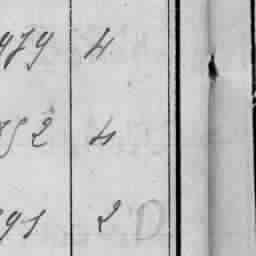 979 4
752 4
791 2 D